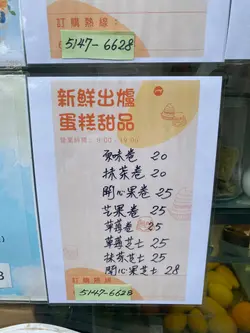 訂購熱線：
5147-6628
新鮮出爐
蛋糕甜品
營業時間：9:00-19:00
原味卷 20
抹茶卷 20
開心果卷 25
芒果卷 25
草莓卷 25
草莓芝士 25
抹茶芝士 25
開心果芝士 28
訂購熱線
5147-6628